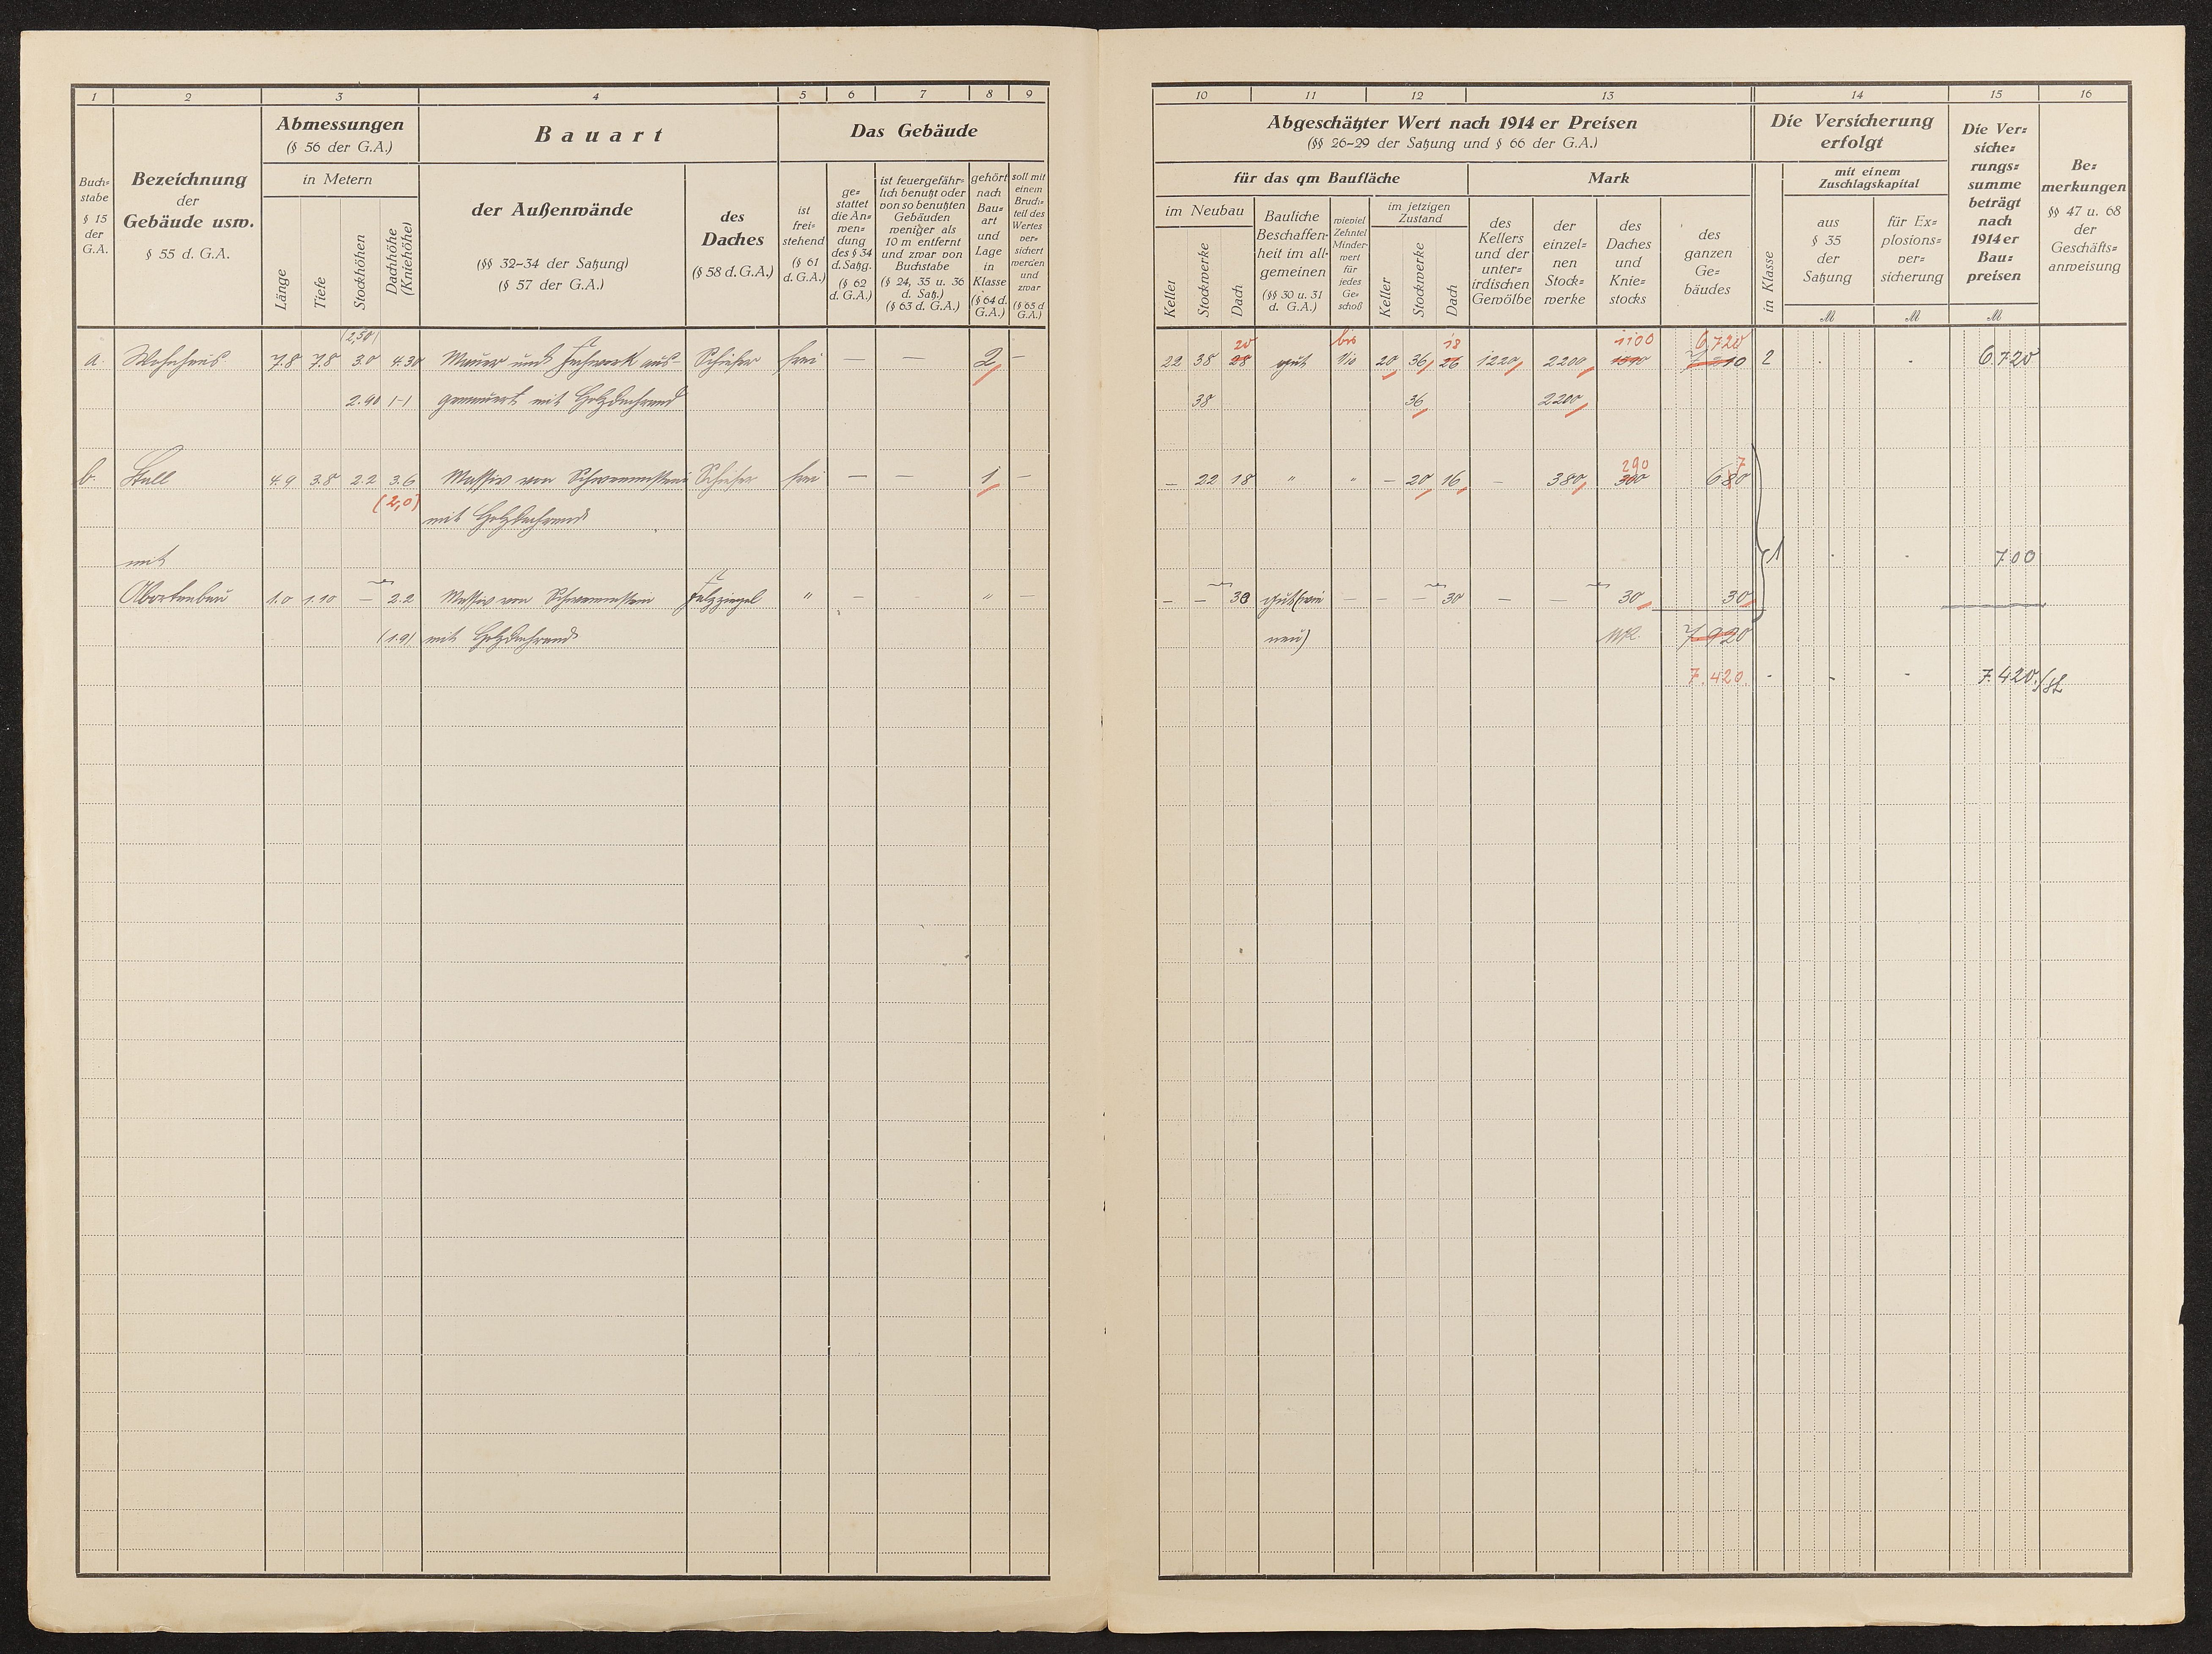 1 2 3 4 5 6 7 8 9
Abmessungen
(§ 56 der G.A.)
Bauart
Das Gebäude
Buch=
stabe
§ 15
der
G.A.
Bezeichnung
der
Gebäude usw.
§ 55 d. G.A.
in Metern
Länge
Tiefe
Stockhöhen
Dachhöhe
(Kniehöhe)
der Außenwände
(§§ 32-34 der Satzung)
(§ 57 der G.A.)
des
Daches
(§ 58 d. G.A.)
ist
frei=
stehend
(§ 61
d. G.A.)
ge=
stattet
die An=
wen=
dung
des § 34
d. Satzg.
(§ 62
d. G.A.)
ist feuergefähr=
lich benutzt oder
von so benutzten
Gebäuden
weniger als
10 m entfernt
und zwar von
Buchstabe
(§ 24, 35 u. 36
d. Satz.)
(§ 63 d. G.A.)
gehört
nach
Bau=
art
und
Lage
in
Klasse
(§ 64 d.
G.A.)
soll mit
einem
Bruch=
teil des
Wertes
ver=
sichert
werden
und
zwar
(§ 65 d
G.A.)
(2,50)
a. Wohnhaus 7.8 7.8 3.0 4.30 Mauer und Fachwerk aus- Schiefer frei — — 2 —
2.90 (-) gemauert mit Holzdachrand
b. Stall 4.9 3.8 2.2 3.6 Massiv von Schwemmstein Schiefer frei — — 1 —
(2,0)
mit Holzdachrand
mit
Abortanbau 1.0 1.10 — 2.2 Massiv von Schwemmstein Falzziegel " — — " —
(1.9) mit Holzdachrand
10 11 12 13 14 15 16
Abgeschätzter Wert nach 1914 er Preisen
(§§ 26-29 der Satzung und § 66 der G.A.)
Die Versicherung
erfolgt
Die Ver=
siche=
rungs=
summe
beträgt
nach
1914er
Bau=
preisen
Be=
merkungen
§§ 47 u. 68
der
Geschäfts=
anweisung
für das qm Baufläche
Mark
im Neubau
Keller
Stockwerke
Dach
Bauliche
Beschaffen=
heit im all=
gemeinen
(§§ 30 u. 31
d. G.A.)
wieviel
Zehntel
Minder=
wert
für
jedes
Ge=
schoß
im jetzigen
Zustand
Keller
Stockwerke
Dach
des
Kellers
und der
unter=
irdischen
Gewölbe
der
einzel=
nen
Stock=
werke
des
Daches
und
Knie=
stocks
des
ganzen
Ge=
bäudes
in Klasse
mit einem
Zuschlagskapital
aus
§ 35
der
Satzung
für Ex=
plosions=
ver=
sicherung
M M M
20 bis 18 1100 6,720
22 38 28 gut 1/10 20 36 26 1220 2200 2 6720
38 36 2200
290 7
— 22 18 " " — 20 16 — 380 300 680
1 700
— — 30 gut (wie — — — 30 — — 30 30
neu) MK. 7920
7.420. 7.420.